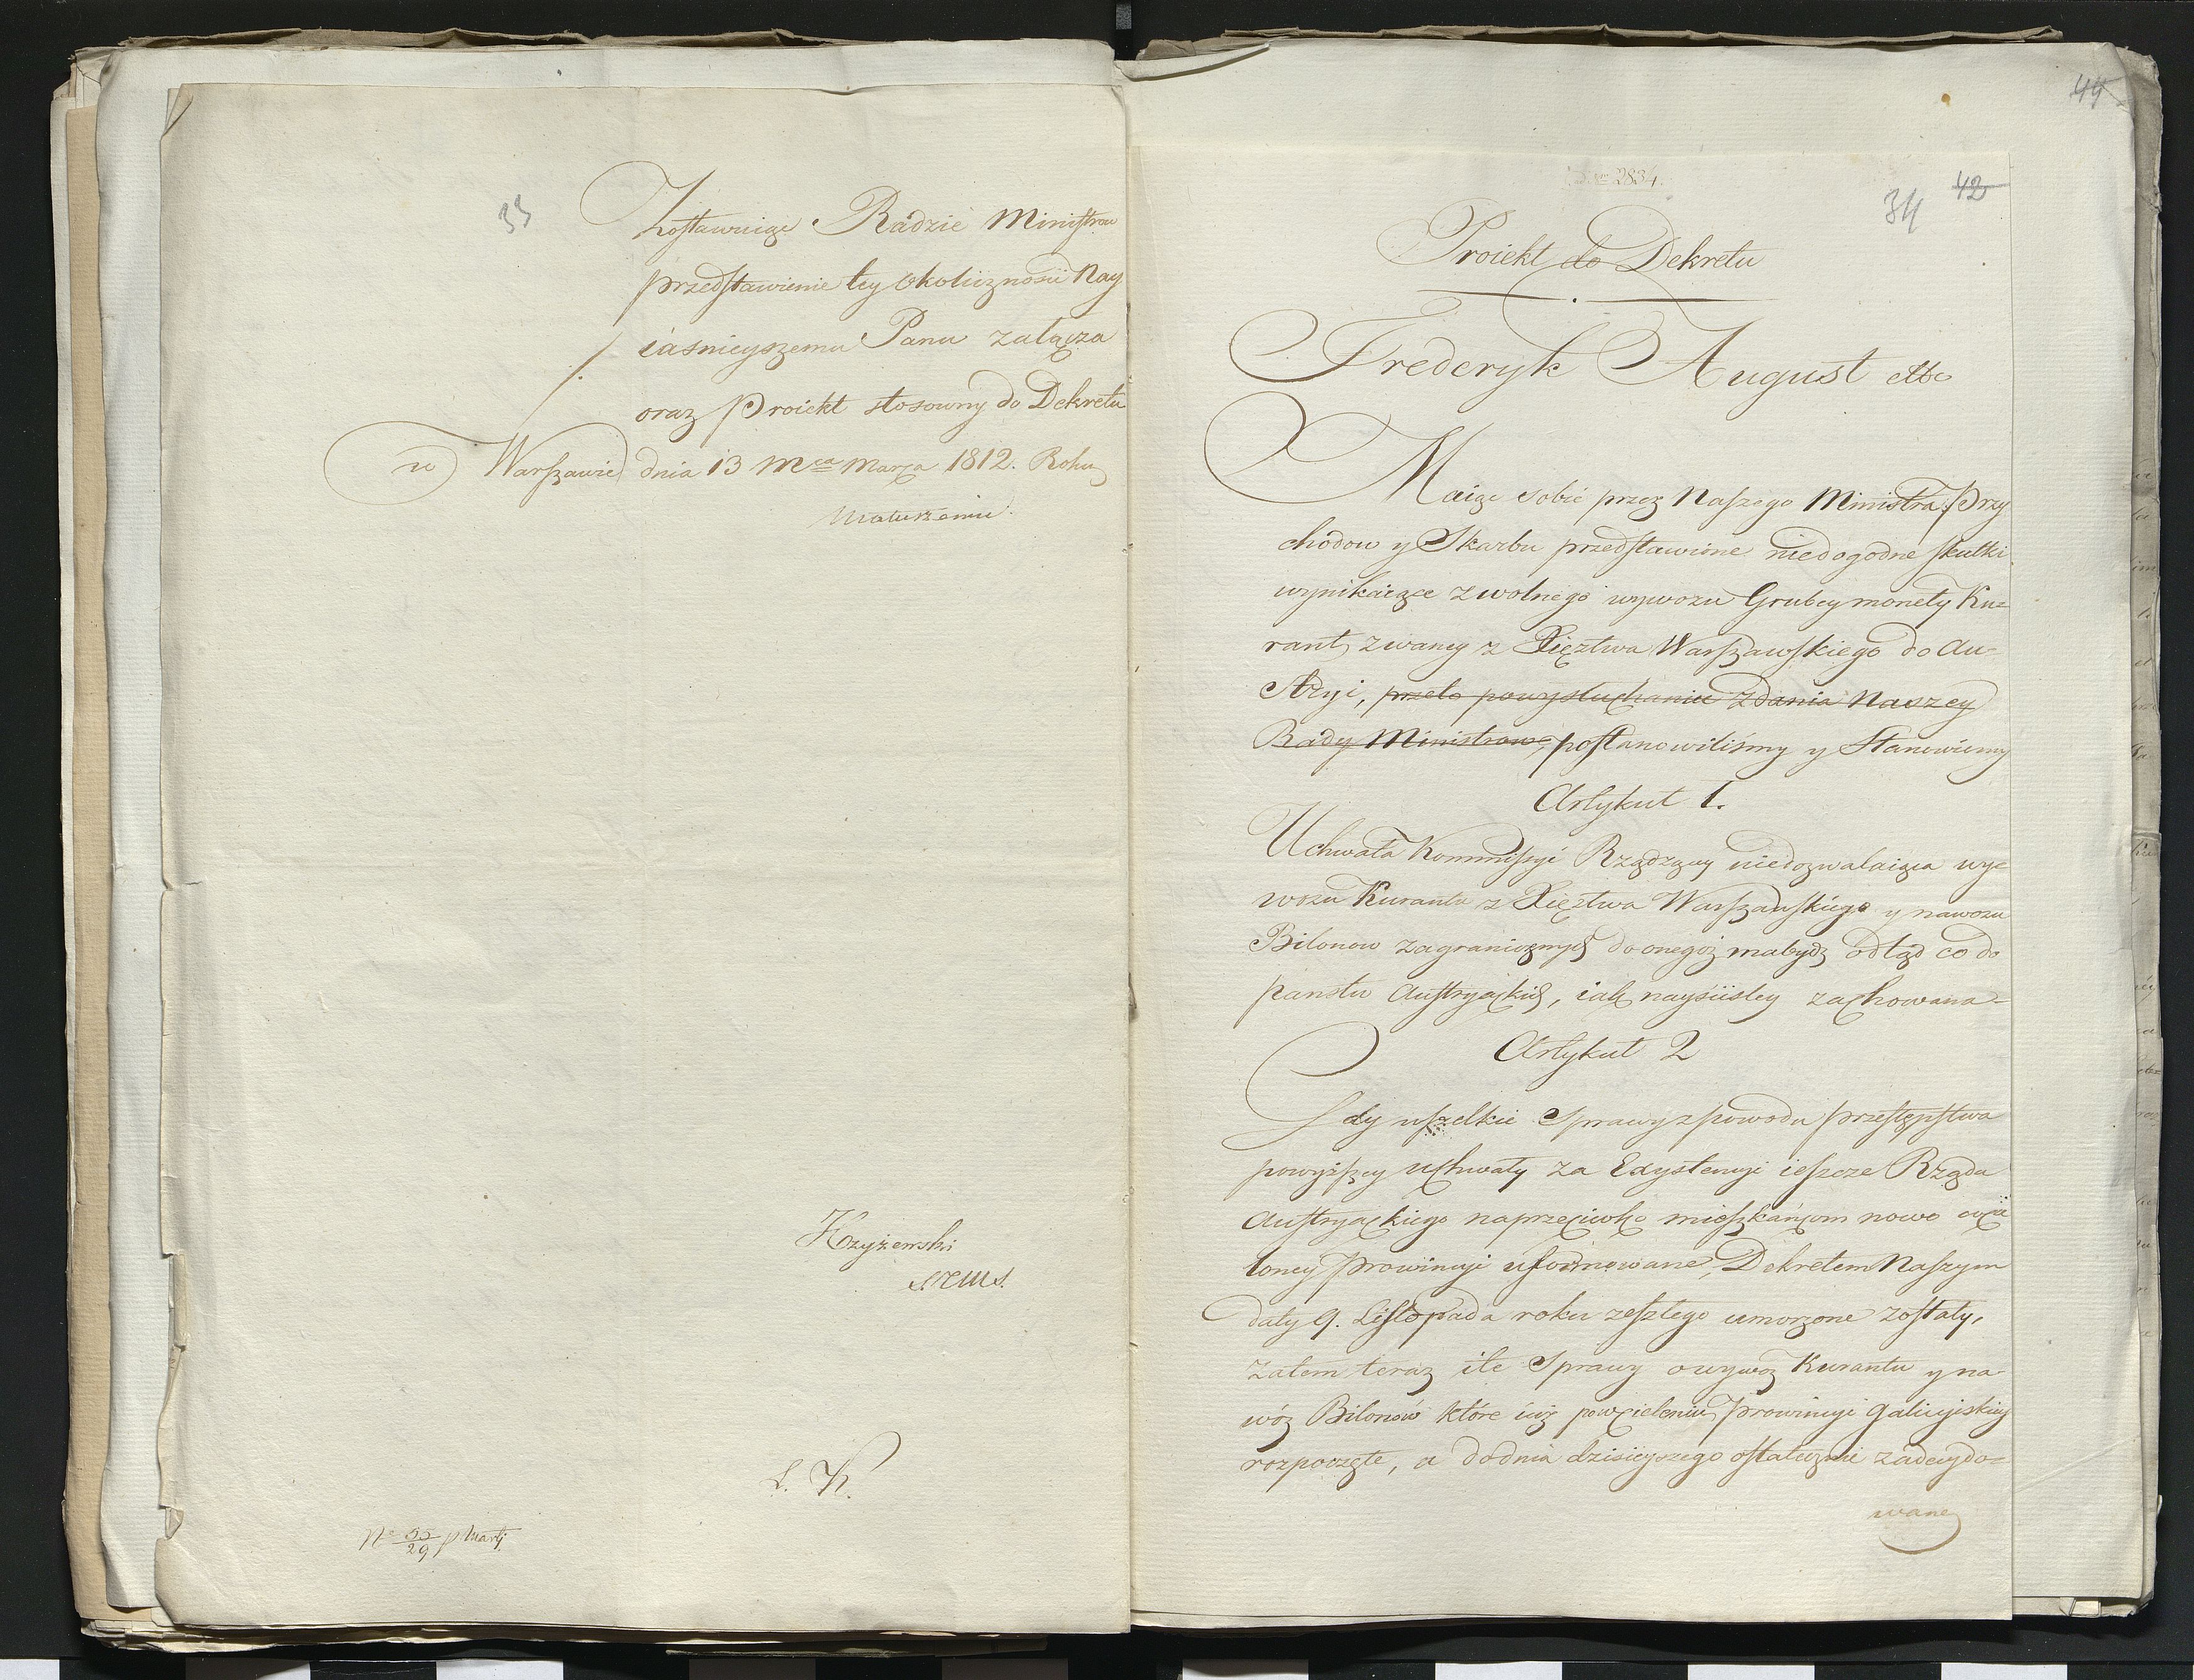 33
Zostawuiąc Radzie Ministrow
przedstawienie tey okoliczności Nay
iaśnieyszemu Panu załącza
oraz Proiekt stosowny do Dekretu
w Warszawie dnia 13 Mca Marca 1812. Roku
Matuszewic
Krzyżewski
L. K.
N 55/29 p Martj
44
2834.
34 42
Proiekt do Dekretu
Frederyk August etc
Maiąc sobie przez Naszego Ministra Przy
chodow y Skarbu przedstawione niedogodne skutki
wynikaiące z wolnego wywozu Grubey monety Ku=
rant zwaney z Xięztwa Warszawskiego do Au=
stryi, przeto powysłuchaniu Zdania Naszey
Rady Ministrow, postanowiliśmy y Stanowiemy
Artykuł 1.
Uchwała Kommissyi Rządzącey niedozwalaiąca wy=
wozu Kurantu z Xięztwa Warszawskiego y nawozu
Bilonow zagranicznych do onegoż ma bydź odtąd co do
panstw Austryackich, iak nayściśley zachowana=
Artykuł 2
Gdy wszelkie Sprawy z powodu przestępstwa
powyższey uchwały za Exystencyi ieszcze Rządu
Austryackiego naprzeciwko mieszkańcom nowo wcie
loney Prowincyi uformowane, Dekretem Naszym
daty 9. Listopada roku zeszłego umorzone zostały,
Zatem teraz ile Sprawy o wywoz Kurantu y na=
wóz Bilonów które iuż powcieleniu Prowincyi Galicyiskiey
rozpoczęte, a do dnia dzisieyszego ostatecznie zadecydo=
wane